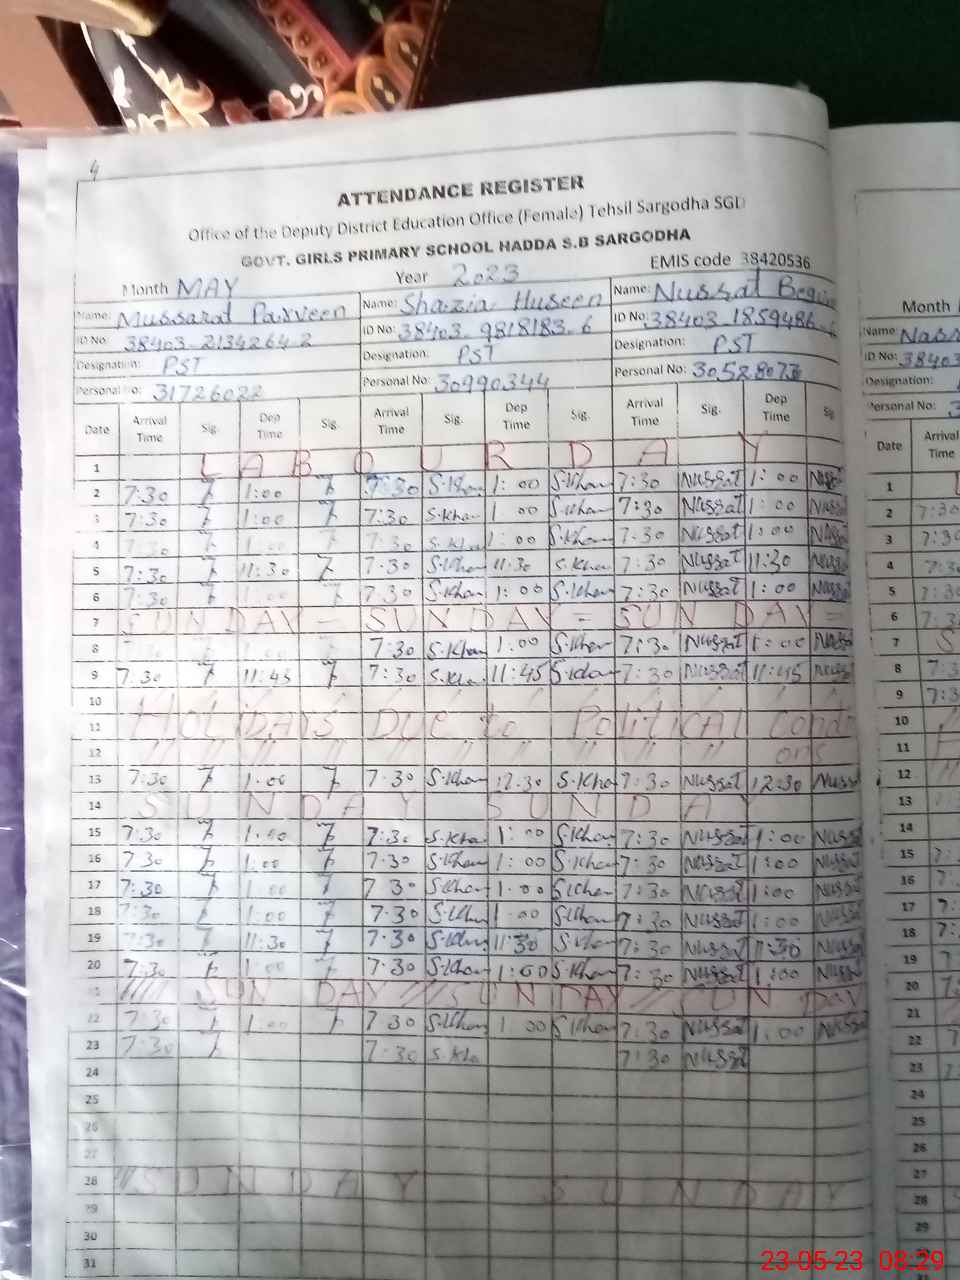 4
ATTENDANCE REGISTER
Office of the Deputy District Education Office (Female) Tehsil Sargodha SGD
GOVT. GIRLS PRIMARY SCHOOL HADDA S.B SARGODHA
Month MAY Year 2023 EMIS code 38420536
Name: Mussarat Parveen Name: Shazia Huseen Name: Nussat Begu
ID No: 38403-2134264-2 ID No: 38403-9818183-6 ID No: 38403-1859486-6
Designation: PST Designation: PST Designation: PST
Personal No: 31726022 Personal No: 30990344 Personal No: 30528073
Date Arrival Time Sig. Dep Time Sig. Arrival Time Sig. Dep Time Sig. Arrival Time Sig. Dep Time Sig
1 LABOUR DAY
2 7:30 1:00 7:30 S.Khan 1:00 S.Khan 7:30 Nussat 1:00 Nuss
3 7:30 1:00 7:30 S.Khan 1:00 S.Khan 7:30 Nussat 1:00 Nuss
4 7:30 1:00 7:30 S.Kha 1:00 S.Khan 7:30 Nussat 1:00 Nuss
5 7:30 11:30 7:30 S.Khan 11:30 S.Kha 7:30 Nussat 11:30 Nuss
6 7:30 1:00 7:30 S.Khan 1:00 S.Khan 7:30 Nussat 1:00 Nuss
7 SUNDAY = SUNDAY = SUNDAY =
8 7:30 S.Khan 1:00 S.Khan 7:30 Nussat 1:00 Nuss
9 7:30 11:45 7:30 S.Kha 11:45 S.Khan 7:30 Nussat 11:45 Nuss
10
11 HOLIDAYS Due to PolitiCAL Condi
12 " " " " " " " " ons
13 7:30 1:00 7:30 S.Khan 12:30 S.Kha 7:30 Nussat 12:30 Nuss
14 SUNDAY SUNDAY
15 7:30 1:00 7:30 S.Kha 1:00 S.Khan 7:30 Nussat 1:00 Nussat
16 7:30 1:00 7:30 S.Khan 1:00 S.Khan 7:30 Nussat 1:00 Nussat
17 7:30 1:00 7:30 S.Khan 1:00 S.Khan 7:30 Nussat 1:00 Nussat
18 7:30 1:00 7:30 S.Khan 1:00 S.Khan 7:30 Nussat 1:00 Nussat
19 7:30 11:30 7:30 S.Khan 11:30 S.Khan 7:30 Nussat 11:30 Nussat
20 7:30 1:00 7:30 S.Khan 1:00 S.Khan 7:30 Nussat 1:00 Nussat
21 SUNDAY // SUNDAY // SUNDAY
22 7:30 1:00 7:30 S.Khan 1:00 S.Khan 7:30 Nussat 1:00 Nussat
23 7:30 7:30 S.Kha 7:30 Nussat
24
25
26
27
28 SUNDAY SUNDAY
29
30
31
Month
Name: Nass
ID No: 38403
Designation:
Personal No: 3
Date Arrival Time
1
2 7:30
3 7:30
4 7:30
5 7:30
6 7:3
7 S
8 7:3
9 7:3
10
11
12
13
14
15
16
17
18
19
20
21
22
23
24
25
26
27
28
29
23-05-23 08:29